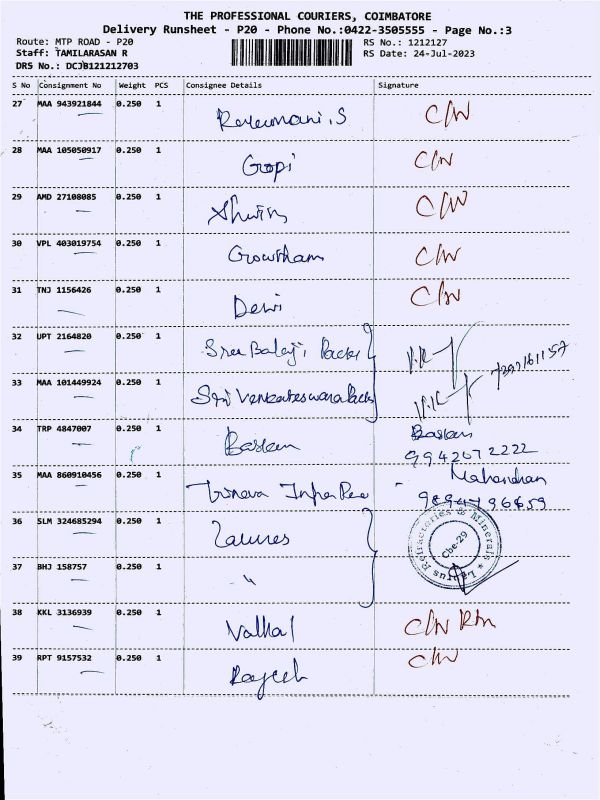 THE PROFESSIONAL COURIERS, COIMBATORE
Delivery Runsheet - P20 - Phone No.:0422-3505555 - Page No.:3
Route: MTP ROAD - P20 RS No.: 1212127
Staff: TAMILARASAN R RS Date: 24-Jul-2023
DRS No.: DCJB121212703
S No Consignment No Weight PCS Consignee Details Signature
27 MAA 943921844 0.250 1 C/W
28 MAA 105050917 0.250 1 Gopi C/W
29 AMD 27108085 0.250 1 Ashwin C/W
30 VPL 403019754 0.250 1 Growtham C/W
31 TNJ 1156426 0.250 1 Devi C/W
32 UPT 2164820 0.250 1 Sree Balaji Packs
33 MAA 101449924 0.250 1 Sri Venkateswara Packs
34 TRP 4847007 0.250 1 Baskan Baskan
9942072222
35 MAA 860910456 0.250 1 Trinova Infra Mahendran
9894796659
36 SLM 324685294 0.250 1 Refractories & Minerals
37 BHJ 158757 0.250 1 " Cbe-29
38 KKL 3136939 0.250 1 C/W
39 RPT 9157532 0.250 1 Rajesh C/W